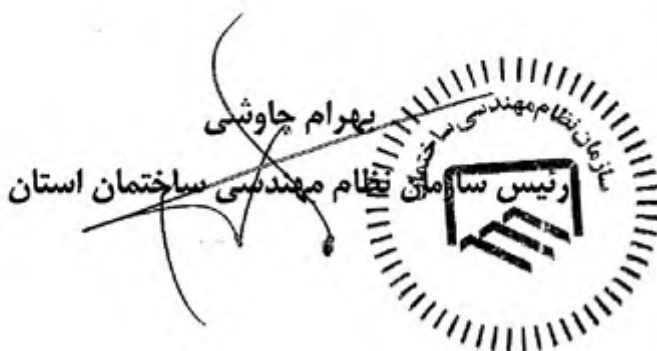 بهرام چاوشی
رئیس سازمان نظام مهندسی ساختمان استان
سازمان نظام مهندسی ساختمان